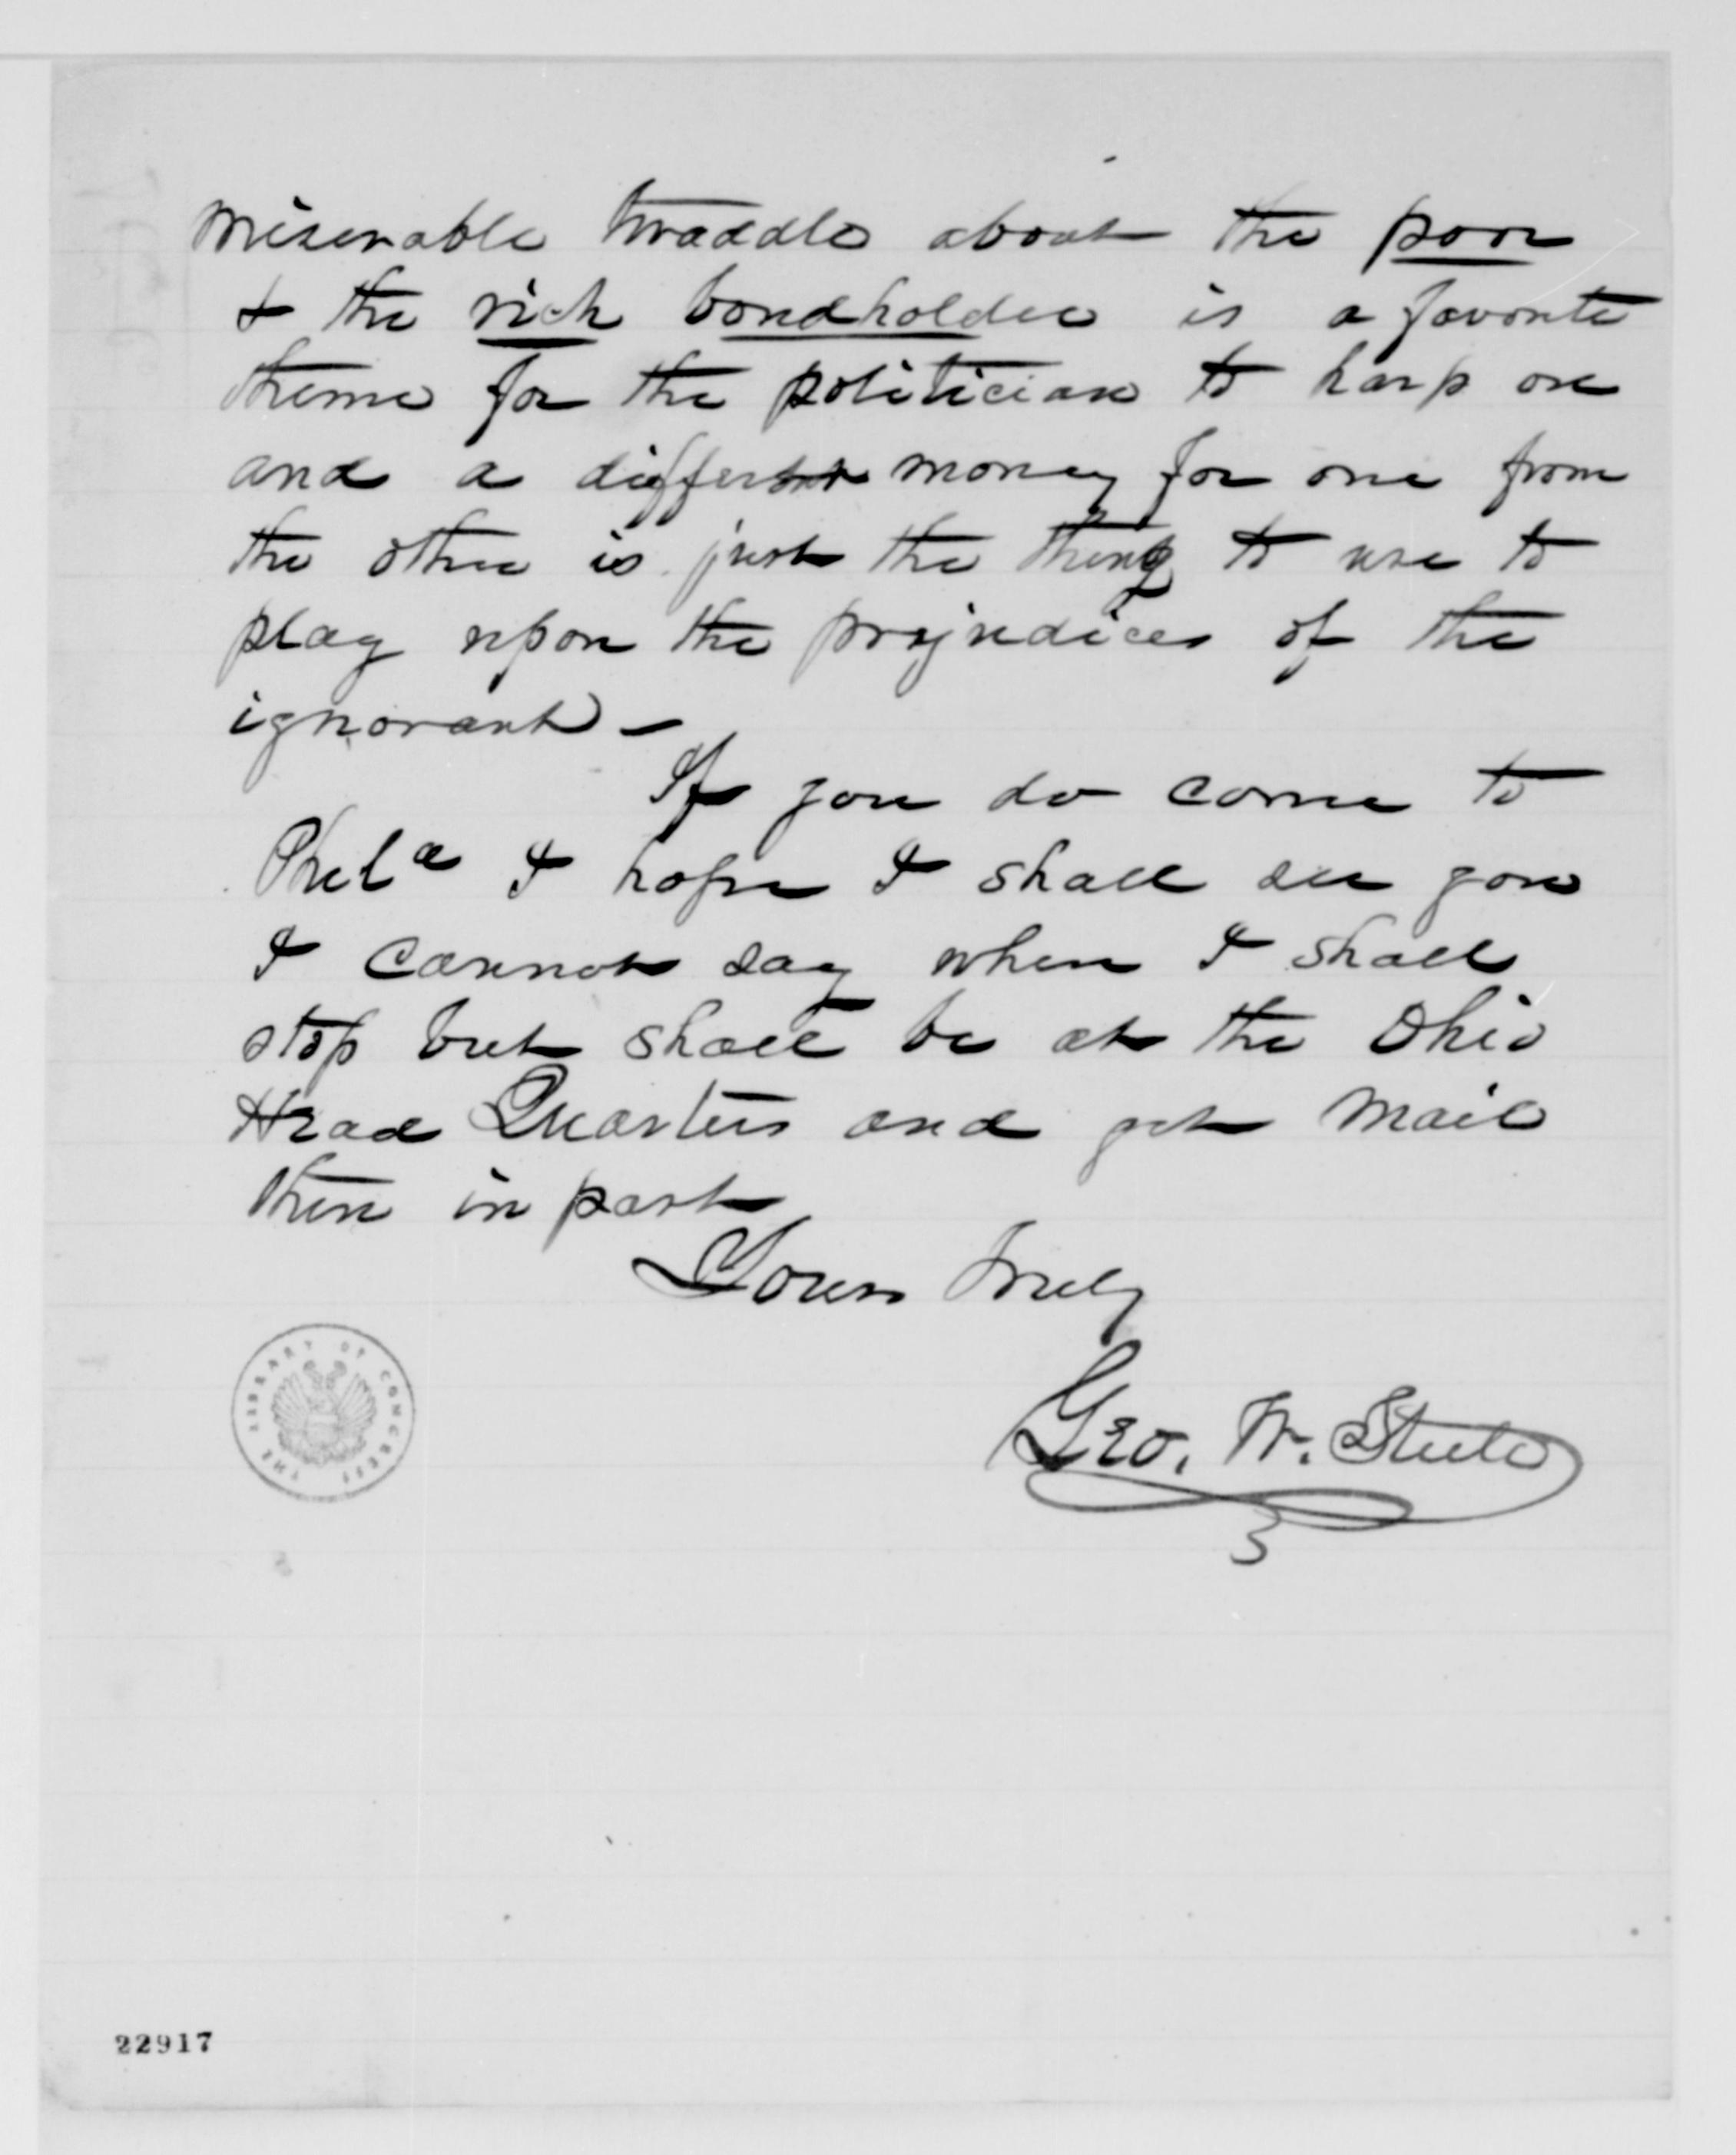 miserable twaddle about the poor
& the rich bondholder is a favorite
theme for the politician to harp on
and a different money for one from
the other is just the thing to use to
play upon the prejudices of the
ignorant –
If you do come to
Phila I hope I shall see you
I cannot say when I shall
stop but shall be at the Ohio
Head Quarters and get mail
there in part
Yours truly
Geo. W. Steele
THE LIBRARY OF CONGRESS
22917